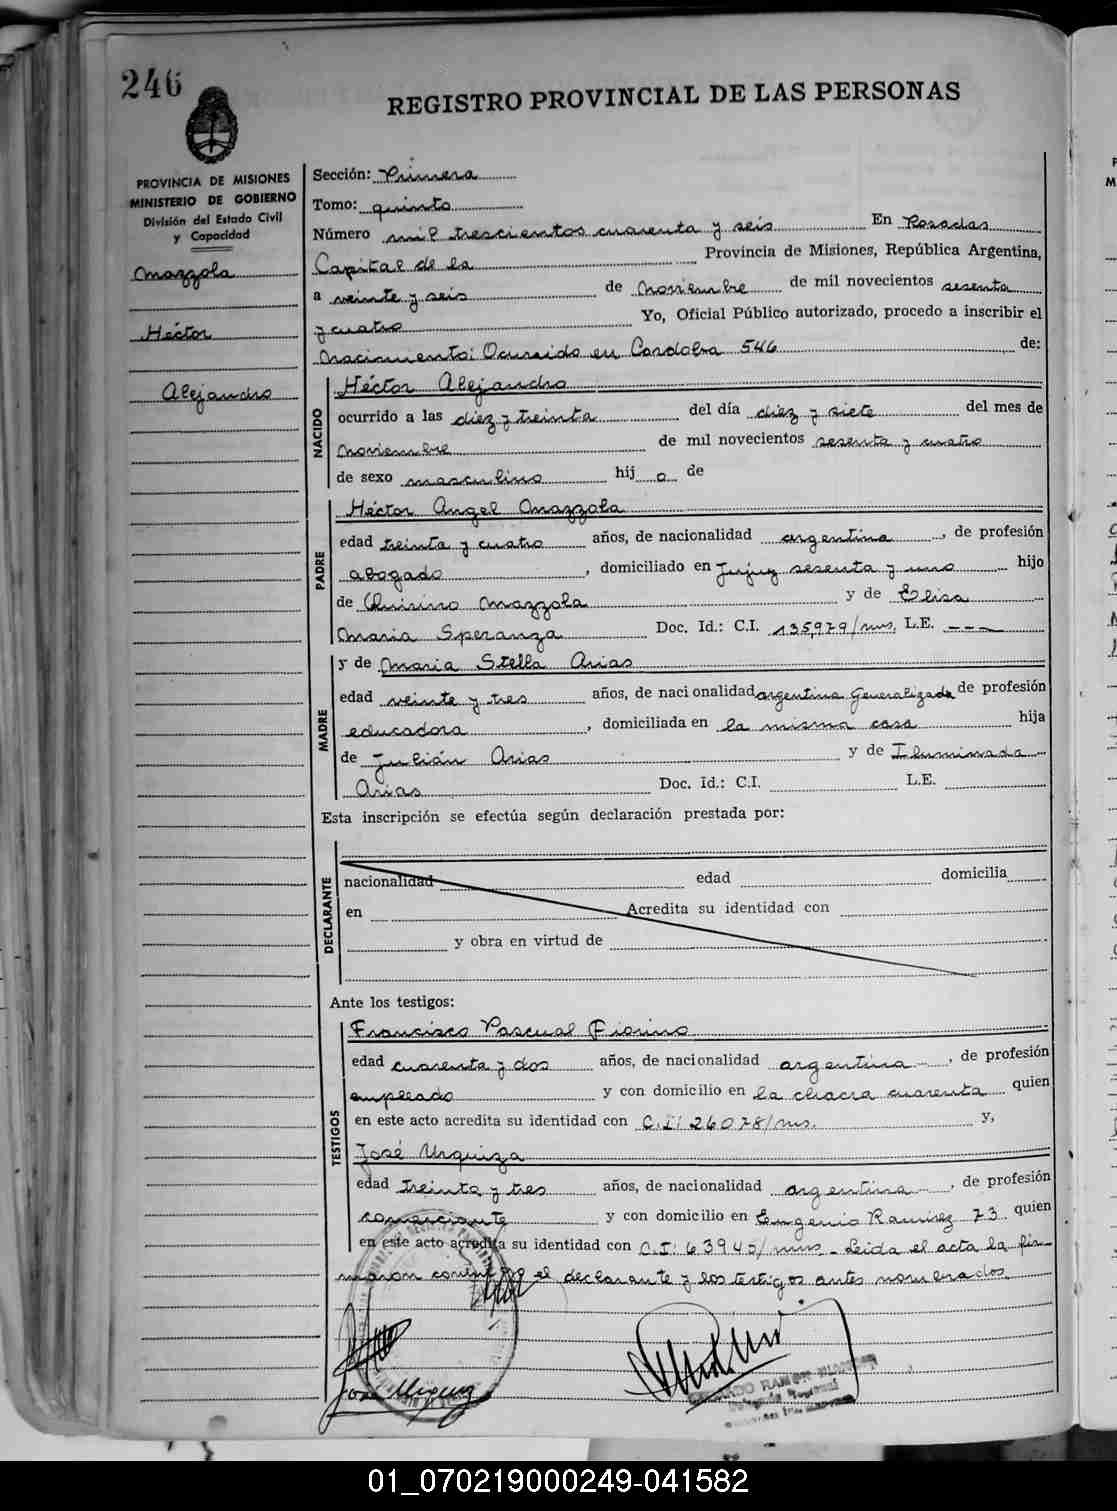 246
REGISTRO PROVINCIAL DE LAS PERSONAS
PROVINCIA DE MISIONES
MINISTERIO DE GOBIERNO
División del Estado Civil
y Capacidad
Mazzola
Héctor
Alejandro
Sección: Primera
Tomo: quinto
Número mil trescientos cuarenta y seis En Posadas
Capital de la Provincia de Misiones, República Argentina,
a veinte y seis de Noviembre de mil novecientos sesenta
y cuatro Yo, Oficial Público autorizado, procedo a inscribir el
Nacimiento: Ocurrido en Cordoba 546 de:
NACIDO
Héctor Alejandro
ocurrido a las diez y treinta del día diez y siete del mes de
Noviembre de mil novecientos sesenta y cuatro
de sexo masculino hij o de
PADRE
Héctor Angel Mazzola
edad treinta y cuatro años, de nacionalidad argentina, de profesión
abogado, domiciliado en Jujuy sesenta y uno hijo
de Quirino Mazzola y de Elisa
Maria Speranza Doc. Id.: C.I. 135,979/mns, L.E. ---
MADRE
y de Maria Stella Arias
edad veinte y tres años, de nacionalidad argentina Generalizada de profesión
educadora, domiciliada en la misma casa hija
de Julián Arias y de Iluminada
Arias Doc. Id.: C.I. L.E.
Esta inscripción se efectúa según declaración prestada por:
DECLARANTE
nacionalidad edad domicilia
en Acredita su identidad con
y obra en virtud de
Ante los testigos:
TESTIGOS
Francisco Pascual Fiorino
edad cuarenta y dos años, de nacionalidad argentina, de profesión
empleado y con domicilio en la chacra cuarenta quien
en este acto acredita su identidad con C.I: 26078/ms. y,
José Urquiza
edad treinta y tres años, de nacionalidad argentina, de profesión
comerciante y con domicilio en Eugenio Ramirez 73 quien
en este acto acredita su identidad con C.I: 63945/mns - Leida el acta la fir-
maron conmigo el declarante y los testigos antes nombrados.
José Urquiza
RAMON
01_070219000249-041582